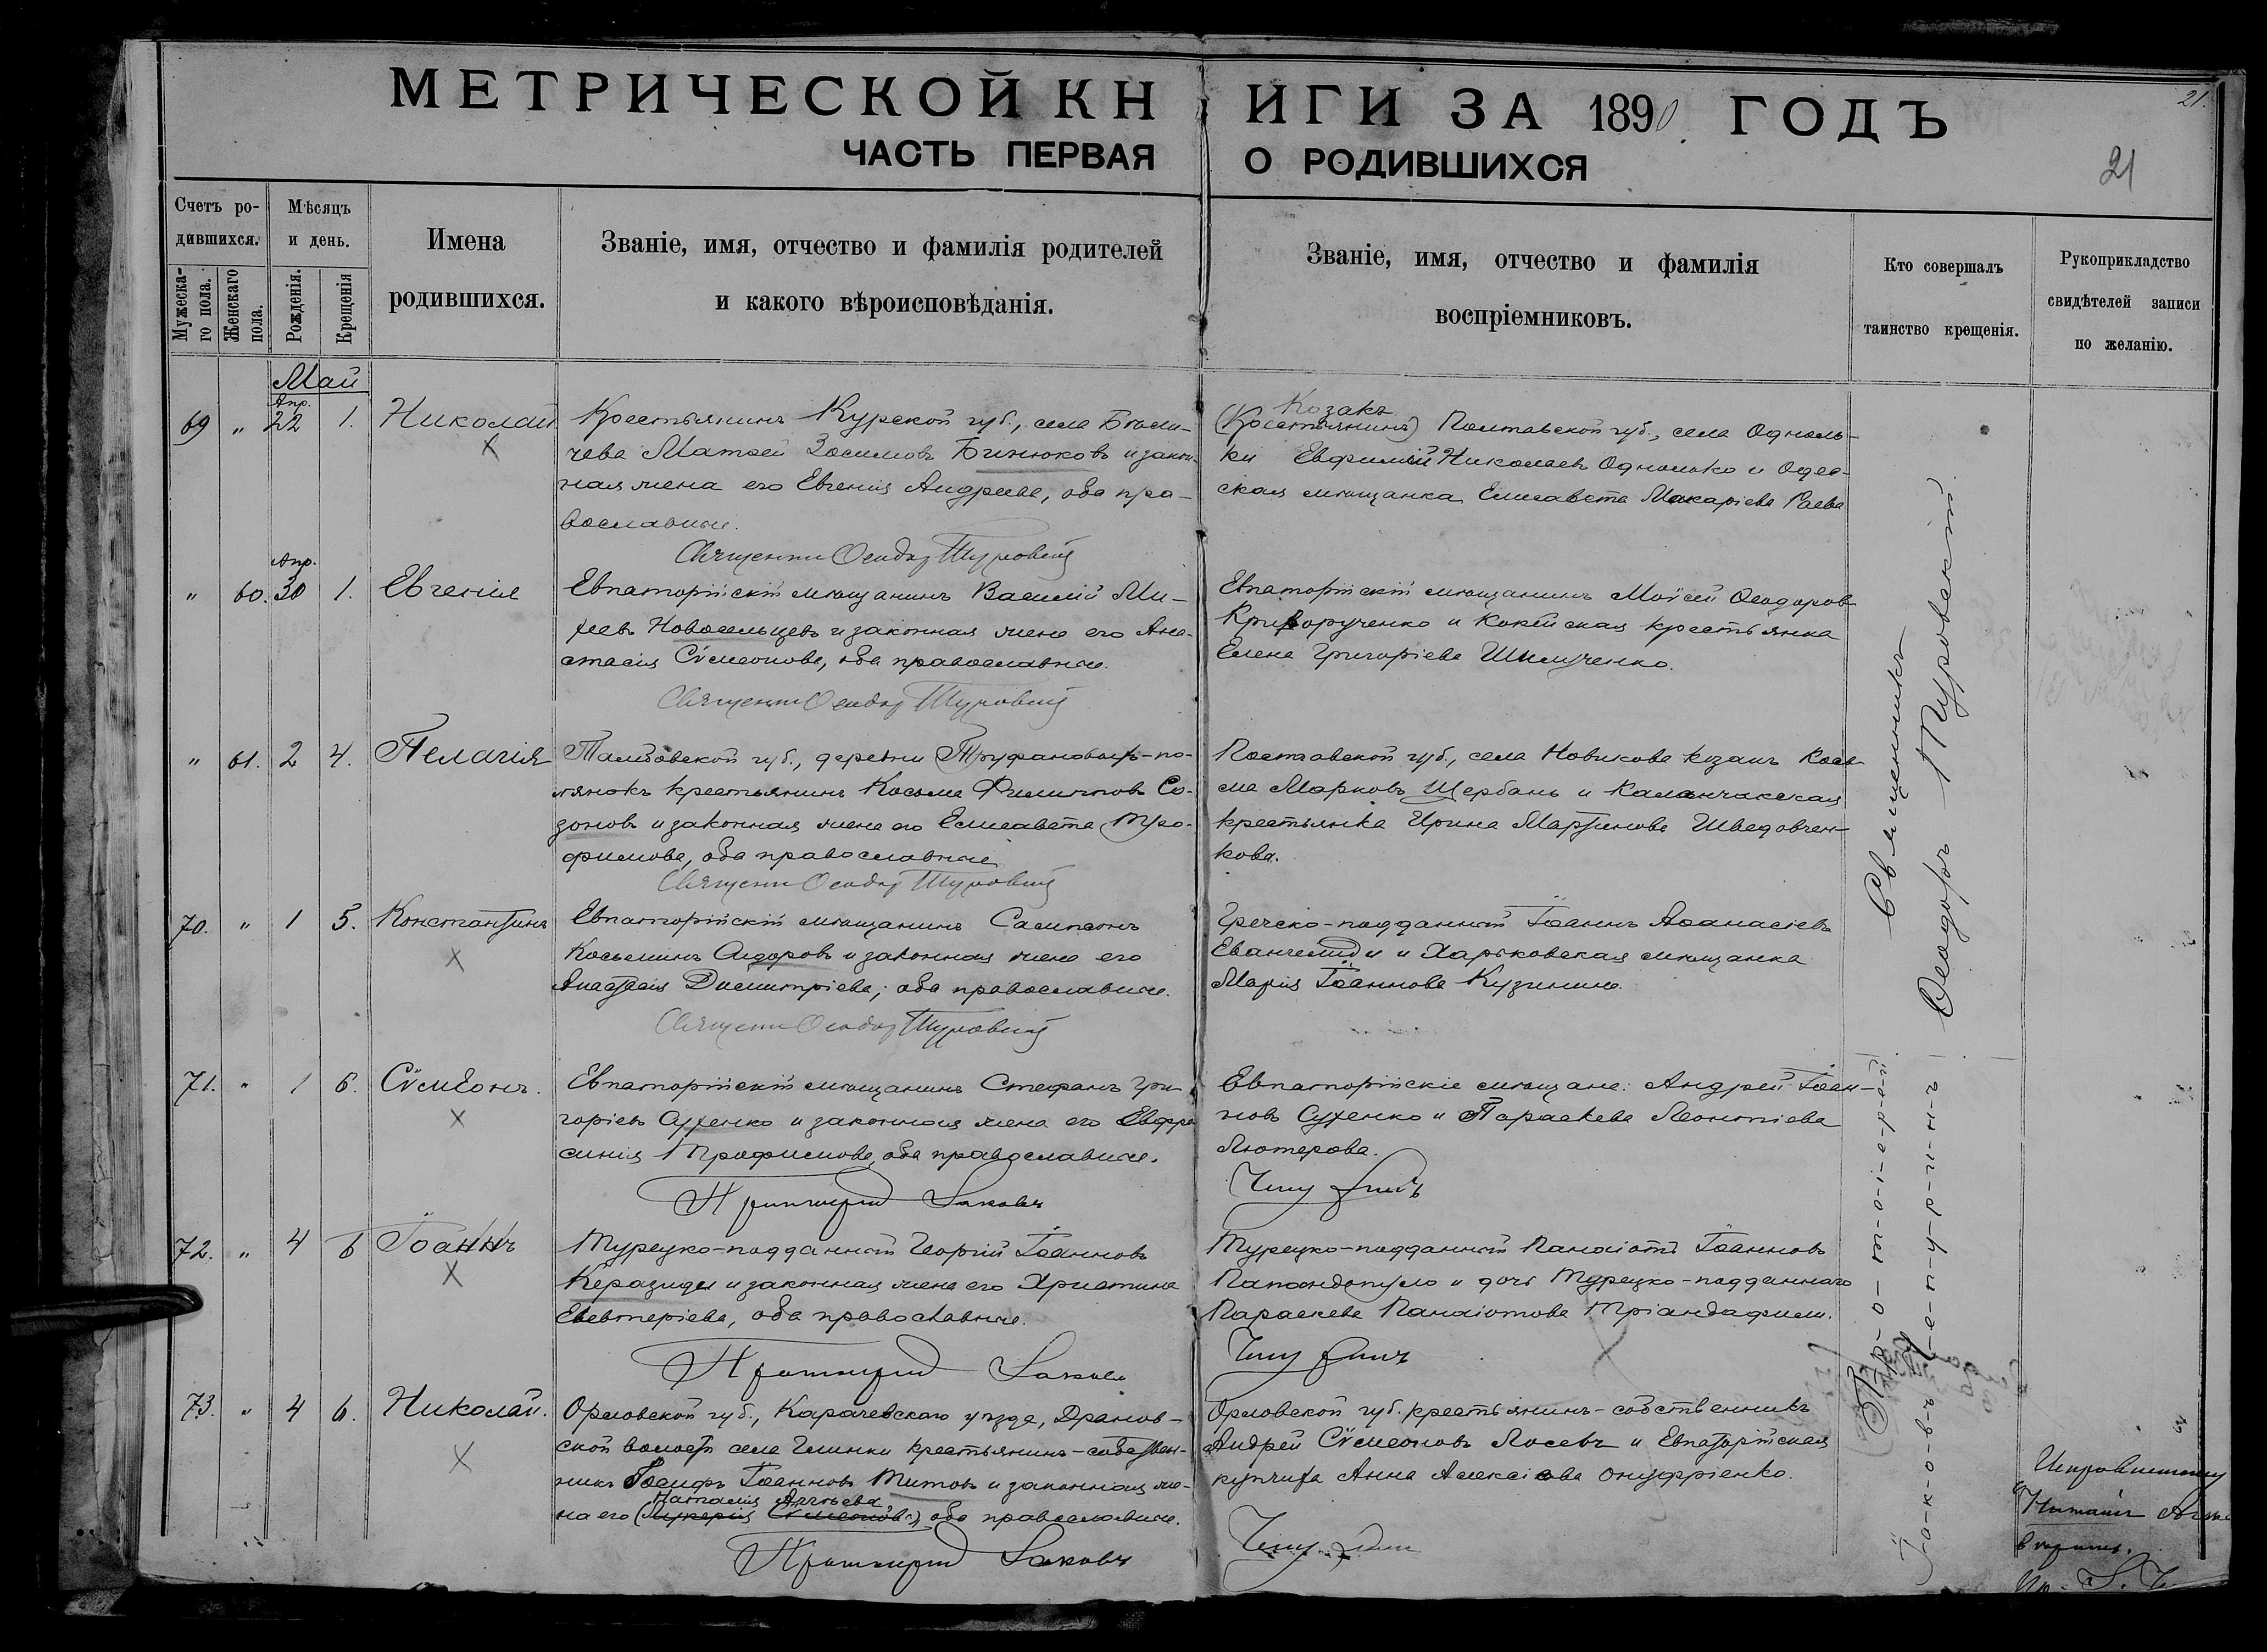 МЕТРИЧЕСКОЙ КНИГИ ЗА 1890 ГОДЪ
21.
ЧАСТЬ ПЕРВАЯ О РОДИВШИХСЯ
21
Счетъ ро-
дившихся.
Мужеска-
го пола.
Женскаго
пола.
Мѣсяцъ
и день.
Рожденія.
Крещенія
Имена
родившихся.
Званіе, имя, отчество и фамилія родителей
и какого вѣроисповѣданія.
Званіе, имя, отчество и фамилія
воспріемниковъ.
Кто совершалъ
таинство крещенія.
Рукоприкладство
свидѣтелей записи
по желанію.
Май
69 " Апр. 22 1. Николай
Крестьянинъ Курской губ., села
чева Матѳей Зосимовъ Бинюковъ и закон-
ная жена его Евгенія Андреева, оба пра-
вославные.
Священник Ѳеодор Туровский
Козакъ
(Крестьянинъ) Полтавской губ., села Одноль-
ки Евфимій Николаевъ Однолько и Одес-
ская мѣщанка Елисавета Макаріева Раева
" 60. Апр. 30 1. Евгенія
Евпаторійскій мѣщанинъ Василій Ми-
хеевъ Новосельцевъ и законная жена его Ана-
стасія Сѵмеонова, оба православные.
Священник Ѳеодор Туровский
Евпаторійскій мѣщанинъ Моѵсей Ѳеодоровъ
Криворученко и крестьянка
Елена Григоріева
" 61. 2 4. Пелагія
Тамбовской губ., деревни Труфановыхъ-по-
лянокъ крестьянинъ Косьма Филипповъ Со-
зоновъ и законная жена его Елисавета Тро-
фимова, оба православные
Священник Ѳеодор Туровский
Полтавской губ., села Новикова козакъ Кось-
ма Марковъ Щербань и Каланчакская
крестьянка Ирина Мартинова Шведовчен-
кова.
70. " 1 5. Константинъ
Евпаторійскій мѣщанинъ Сампсонъ
Косьминъ Сидоровъ и законная жена его
Анастасія Димитріева; оба православные.
Священник Ѳеодор Туровский
Греческо-подданный Іоаннъ Аѳанасіевъ
Евангелиди и Харьковская мѣщанка
Марія Іоаннова Кузинина.
71. " 1 6. Сѵмеонъ.
Евпаторійскій мѣщанинъ Стефанъ Гри-
горіевъ Сухенко и законная жена его Евфро
синія Трофимова, оба православные.
Протоиерей Іаковъ
Евпаторійскіе мѣщане: Андрей Іоан-
новъ Сухенко и Параскева Леонтіева
Лютерова.
Чепуринъ
72. " 4 6 Іоаннъ
Турецко-подданный Георгій Іоанновъ
Керазиди и законная жена его Христина
Елевтеріева, оба православные.
Протоиерей Іаковъ
Турецко-подданный Панаіотъ Іоанновъ
Папандопуло и дочь Турецко-подданнаго
Параскева Панаіотова Тріандафили.
Чепуринъ
73. " 4 6. Николай.
Орловской губ., Карачевскаго уѣзда, Драгов-
ской волости села Глинки крестьянинъ-собствен-
никъ Іосифъ Іоанновъ Титовъ и законная же-
Наталія
на его (Гликерія Сѵмеонова), оба православные.
Протоиерей Іаковъ
Орловской губ. крестьянинъ-собственникъ
Андрей Сѵмеоновъ Лосевъ и Евпаторійская
купчиха Анна Алексіева Онуфріенко.
Чепуринъ
Священникъ
Ѳеодоръ Туровскій
П-р-о-т-о-і-е-р-е-й
І-а-к-о-в-ъ Ч-е-п-у-р-и-н-ъ